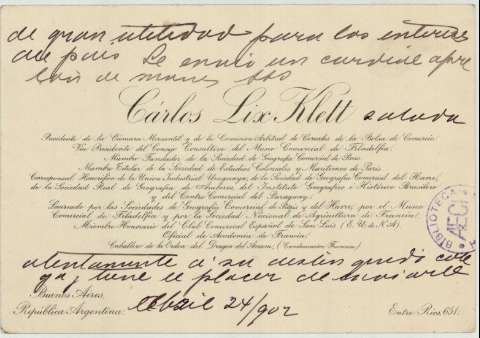 de gran utilidad para los intereses
del pais Le envio un cordial apre
ton de manos
Cárlos Lix Klett saluda
Presidente de la Cámara Mercantil y de la Comisión Arbitral de Cereales de la Bolsa de Comercio
Vice Presidente del Consejo Consultivo del Museo Comercial de Filadelfia
Miembro Fundador de la Sociedad de Geografía Comercial de París
Miembro Titular de la Sociedad de Estudios Coloniales y Marítimos de París
Corresponsal Honorífico de la Unión Industrial Uruguaya, de la Sociedad de Geografía Comercial del Havre,
de la Sociedad Real de Geografía de Amberes, del Instituto Geográfico é Histórico Brasilero
y del Centro Comercial del Paraguay
Laureado por las Sociedades de Geografía Comercial de París y del Havre, por el Museo
Comercial de Filadelfia y por la Sociedad Nacional de Agricultura de Francia
Miembro Honorario del Club Comercial Español de San Luis (E. U. de N. A)
Oficial de Academia de Francia
Caballero de la Orden del Dragón del Annam, (Condecoración Francesa)
atentamente á su distinguido
y tiene el placer de enviarle
Buenos Aires,
República Argentina: Abril 24/902
Entre Rios, 651.
BIBLIOTECA